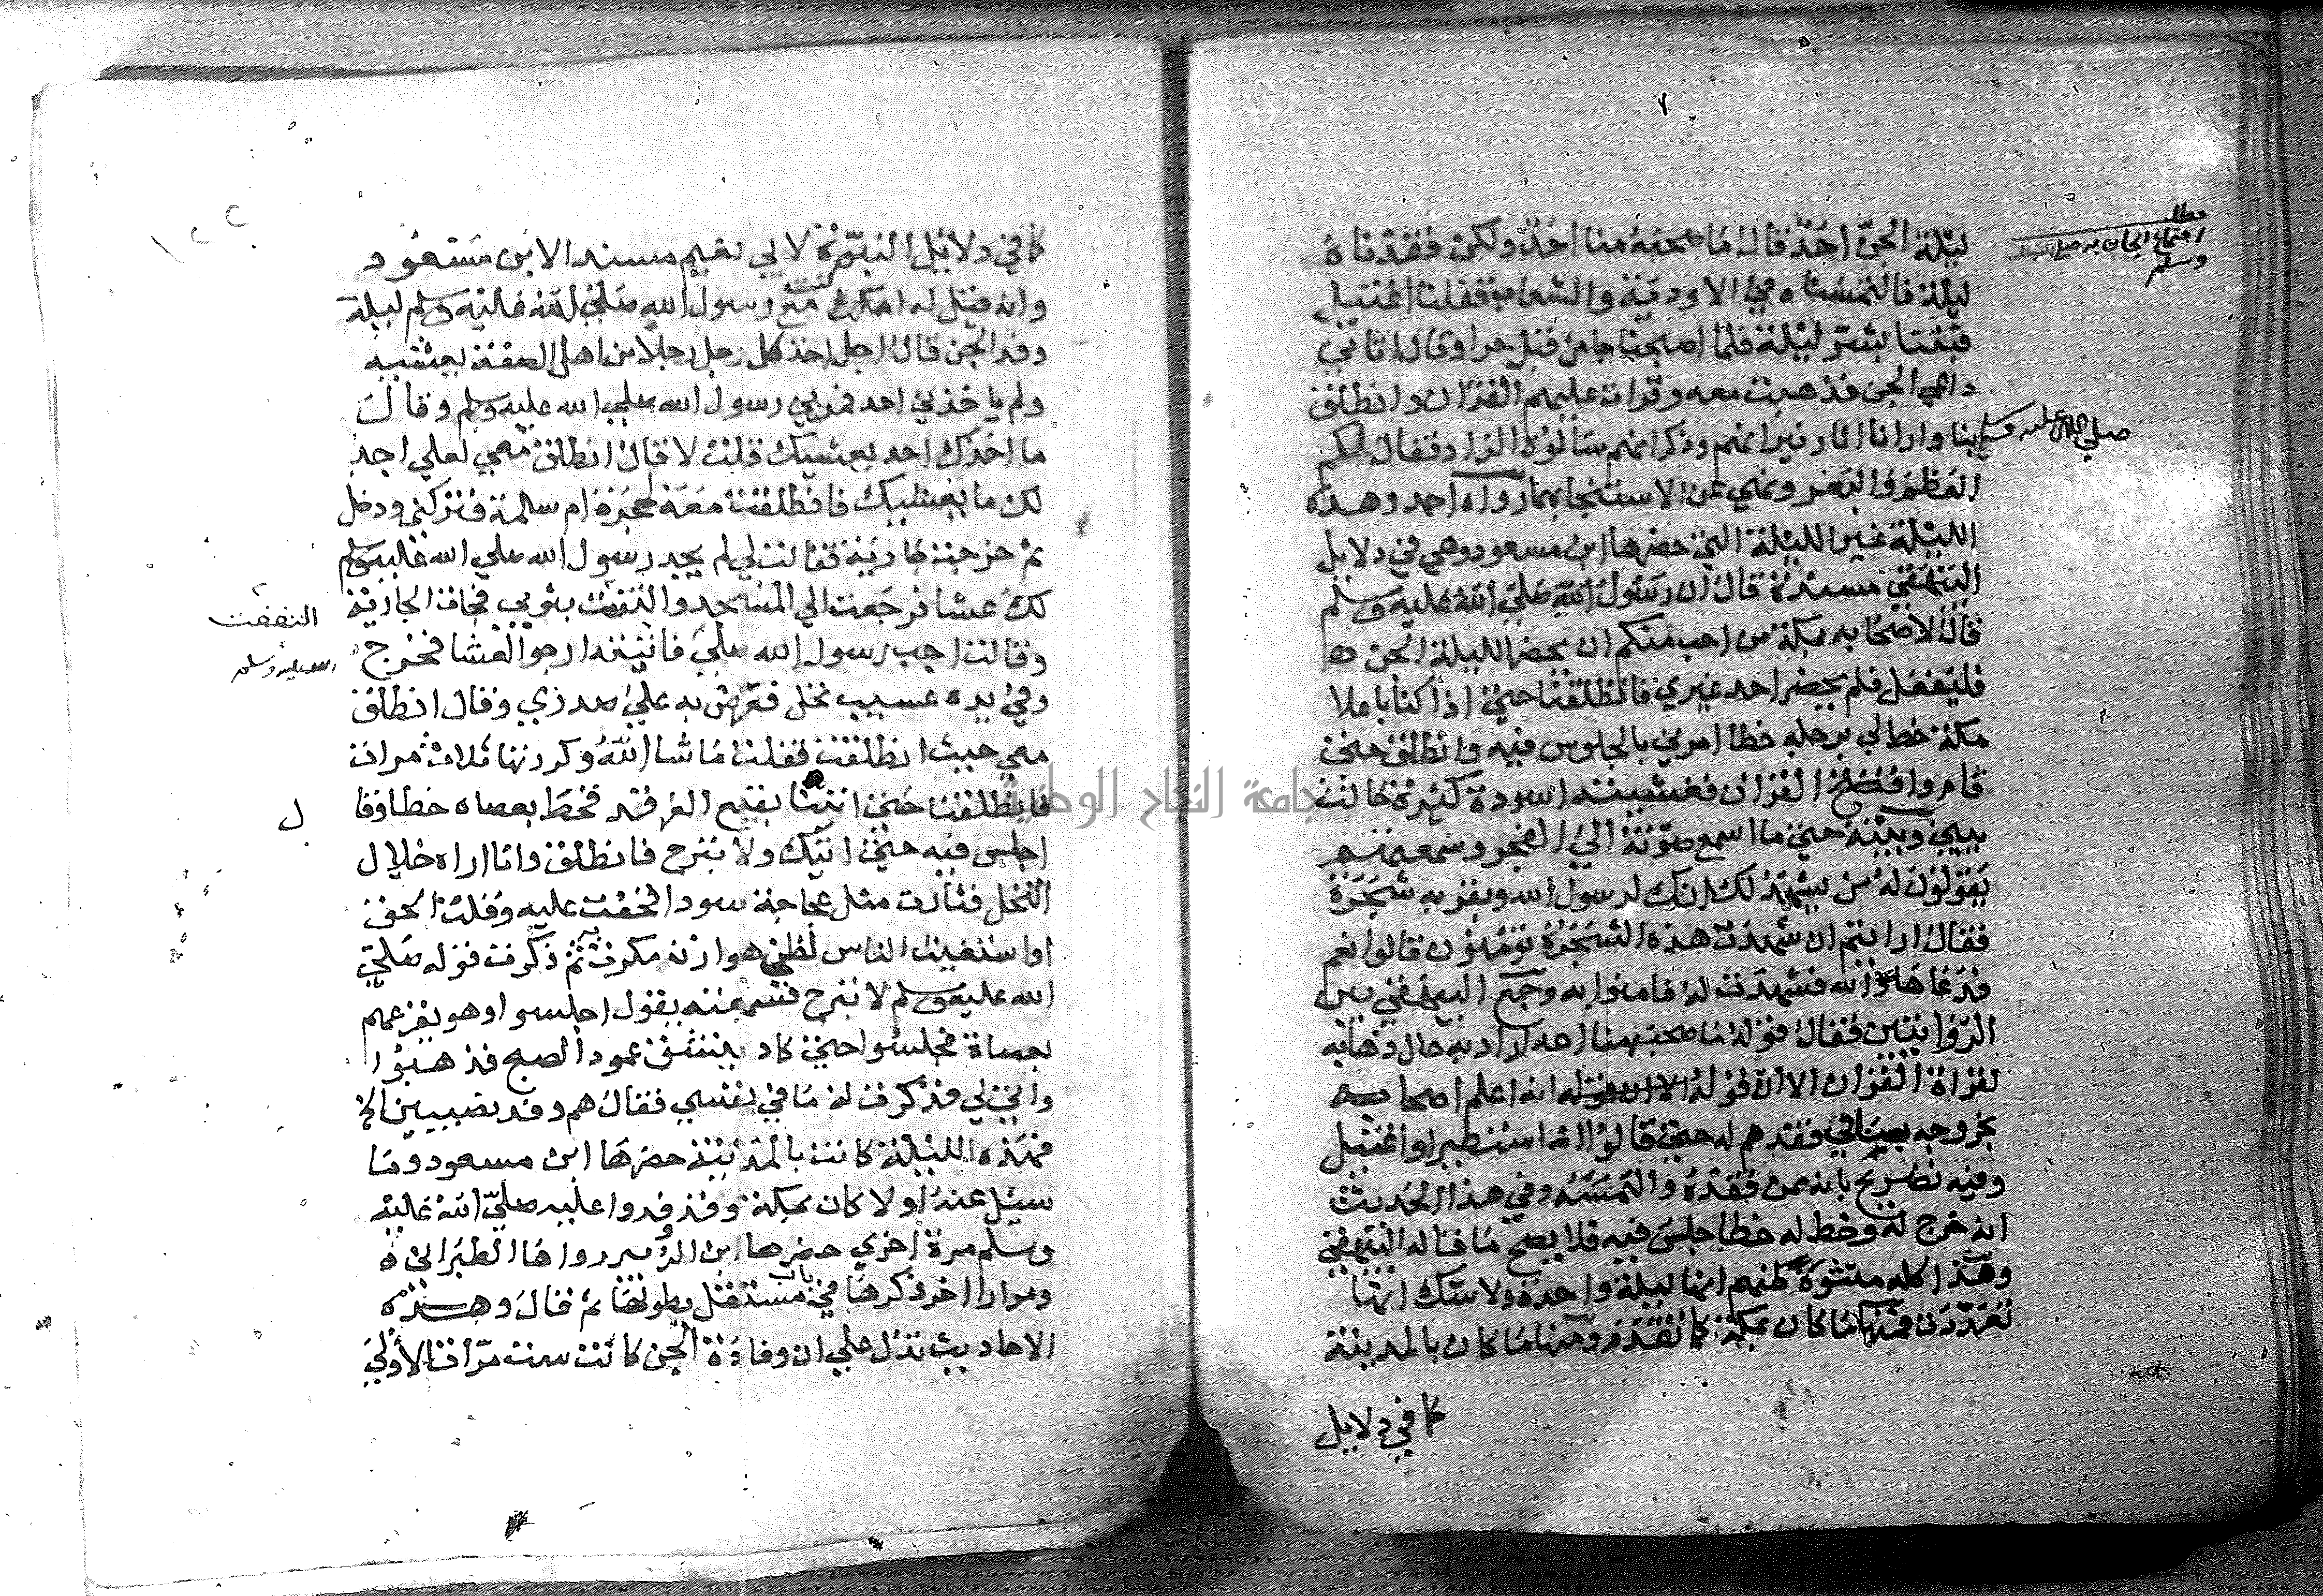 مطلب
اجتماع الجان به صلى الله عليه
وسلم
ليلة الجن احد قال ما صحبه منا احد ولكن فقدناه
ليلة فالتمسناه في الاودية والشعاب فقلنا اغتيل
فبتنا بشر ليلة فلما اصبحنا جا من قبل حرا وقال اتاني
داعي الجن فذهبت معه وقرات عليهم القران وانطلق
صلى الله عليه وسلم
بنا وارانا اثار نيرانهم وذكر انهم سالوه الزاد فقال لكم
العظم والبعر ونهي عن الاستنجا بهما رواه احمد وهذه
الليلة غير الليلة التي حضرها ابن مسعود وهي في دلايل
البيهقي مسندة قال ان رسول الله صلي الله عليه وسلم
قال لاصحابه بمكة من احب منكم ان يحضر الليلة الجن
فليفعل فلم يحضر احد غيري فانطلقنا حتي اذا كنا باعلا
مكة خط لي برجله خطا امرني بالجلوس فيه وانطلق حتي
قام وافتتح القران فغشيته اسودة كثيرة حالت
بيني وبينه حتي ما اسمع صوته الي الفجر وسمعتهم
يقولون له من يشهد لك انك لرسول الله وبقربه شجرة
فقال ارايتم ان شهدت هذه الشجرة تومنون قالوا نعم
فدعاها فشهدت له فامنوا به وجمع البيهقي بين
الروايتين فقال قوله ما صحبه منا احد اراد به حال ذهابه
لقراة القران الا ان قوله انه اعلم اصحابه
بخروجه ينافي فقدهم له حتي قالوا انه استطير او اغتيل
وفيه تصريح بانه ممن فقده والتمسه وفي هذا الحديث
انه خرج له وخط له خطا جلس فيه فلا يصح ما قاله البيهقي
وهذا كله منشوه ظنهم انها ليلة واحدة ولا شك انها
تعددت فمنها ما كان بمكة كما تقدم ومنها ما كان بالمدينة
كما في دلايل
كما في دلايل النبوة لابي نعيم مسند الابن مسعود
وانه قيل له اكنت مع رسول الله صلي الله عليه وسلم ليلة
وفد الجن قال اجل اخذ كل رجل رجلا من اهل الصفة يعشيه
ولم ياخذني احد فمر بي رسول الله صلي الله عليه وسلم وقال
ما اخذك احد يعشيك قلت لا قال انطلق معي لعلي اجد
لك ما يعشيك فانطلقت معه لحجرة ام سلمة فتركني ودخل
ثم خرجت جارية فقالت لي لم يجد رسول الله صلي الله عليه وسلم
لك عشا فرجعت الي المسجد والتففت بثوبي فجات الجارية
التففت
وقالت اجب رسول الله صلي فاتيته ارجو العشا فخرج
الله عليه وسلم
وفي يده عسيب نخل فعرض به علي صدري وقال انطلق
معي حيث انطلقت فقلت ما شا الله وكررتها ثلاث مرات
فانطلقنا حتي اتينا بقيع الغرقد فخط بعصاه خطا وقا
ل
اجلس فيه حتي اتيك ولا تبرح فانطلق وانا اراه خلال
النخل فثارت مثل عجاجة سودا فخفت عليه وقلت الحق
او استغيث الناس لظني هوازن مكرت به ثم ذكرت قوله صلي
الله عليه وسلم لا تبرح فسمعته يقول اجلسوا وهو يقرعهم
بعصاه فجلسوا حتي كاد ينشق عمود الصبح فذهبوا
واتي لي فذكرت له ما في نفسي فقال هم وفد نصيبين الخ
فهذه الليلة كانت بالمدينة حضرها ابن مسعود وما
سيل عنه اولا كان بمكة وقد وفدوا عليه صلي الله عليه
وسلم مرة اخري حضرها ابن الزبير رواها الطبراني
ومرارا اخر ذكرها في باب مستقل بطولها ثم قال وهذه
الاحاديث تدل علي ان وفادة الجن كانت ست مرات الاولي
جامعة النجاح الوطنية